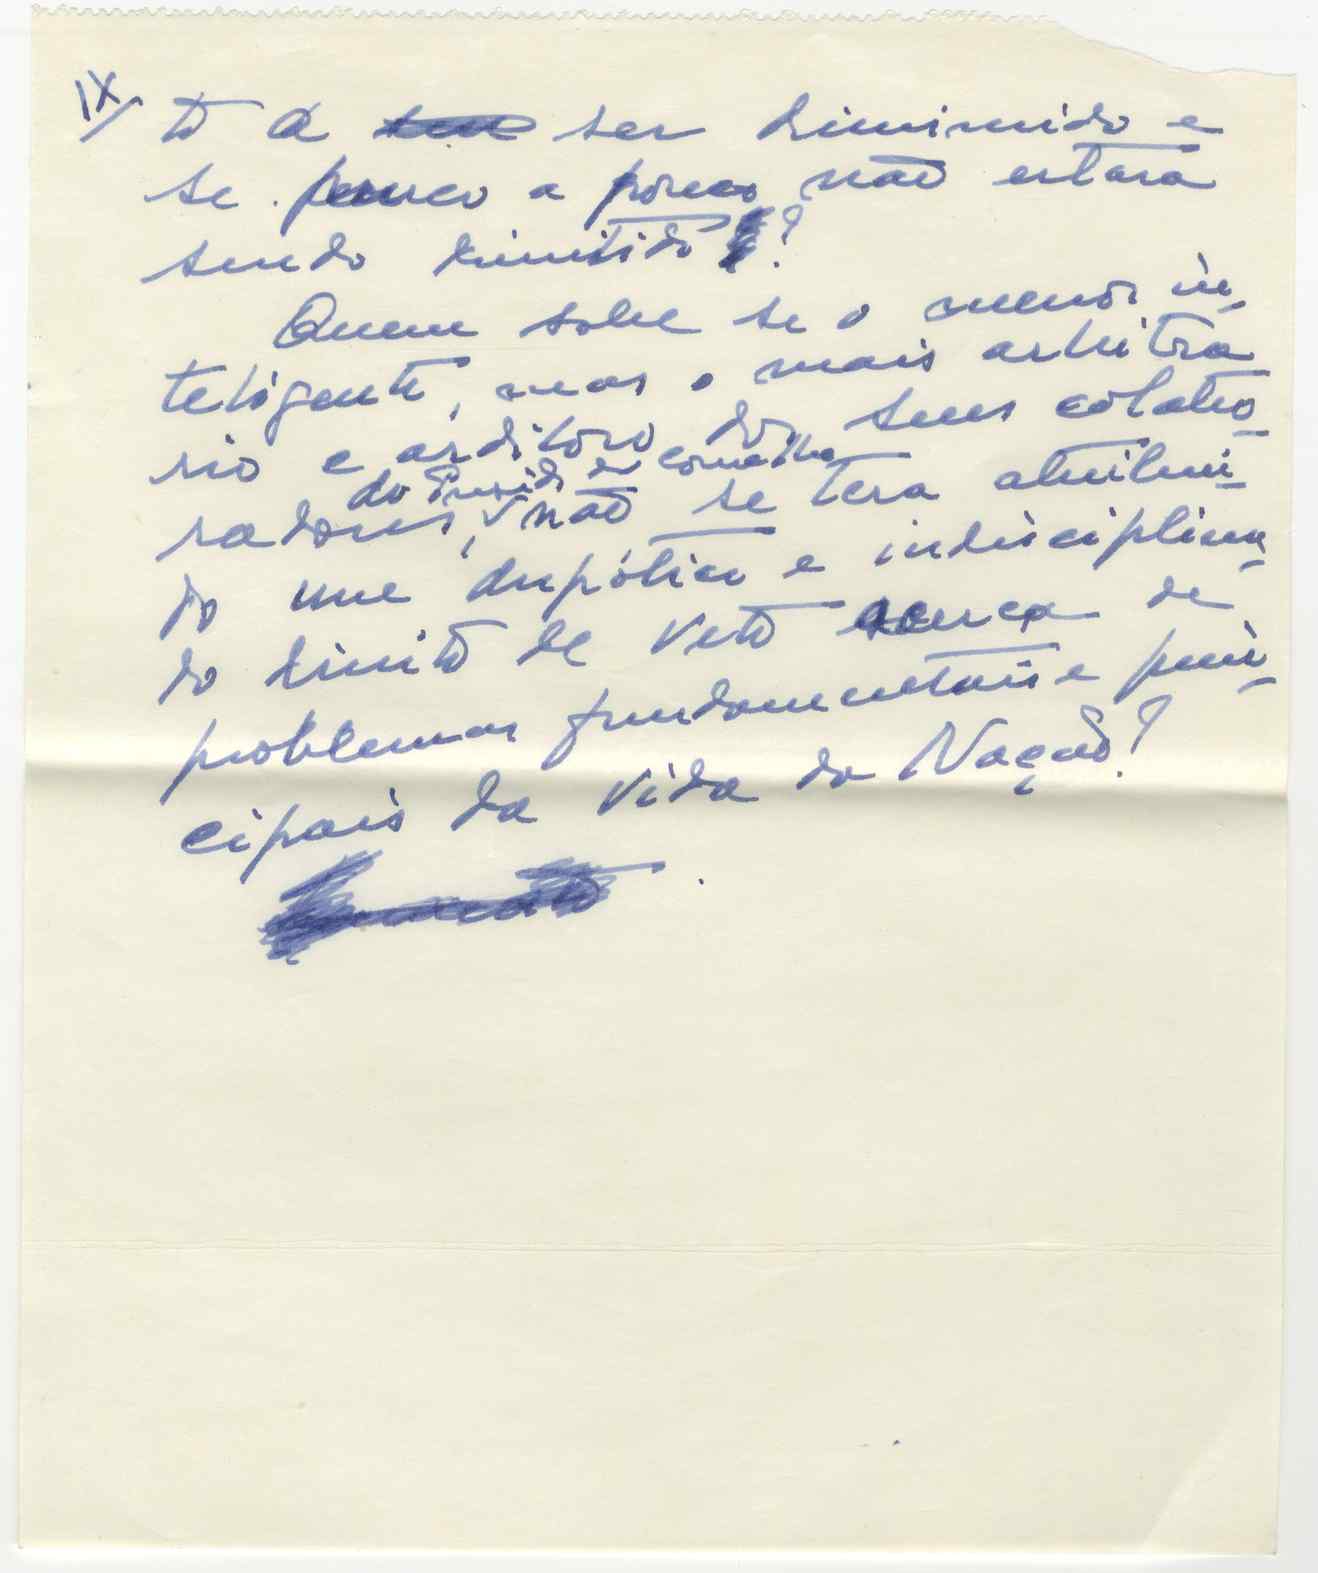 IX/
to a ser diminuido e
se pouco a pouco não estará
sendo demitido?
Quem sabe se o menos in-
teligente, mas o mais arbitrá
rio e ardiloso dos seus colabo-
do Presid. do Conselho
radores, não se terá atribui-
do um despótico e indisciplina-
do direito de veto acerca de
problemas fundamentais e prin-
cipais da vida da Nação?